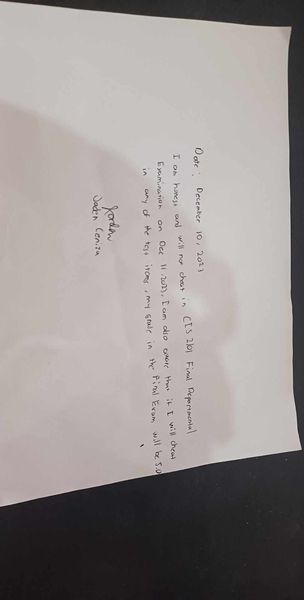 Date: December 10, 2023
I am honest and will not cheat in CIS 2101 Final Departmental
Examination on Dec 11, 2023, I am also aware that if I will cheat
in any of the test items, my grade in the Final Exam will be 5.0
Jaden Ceniza